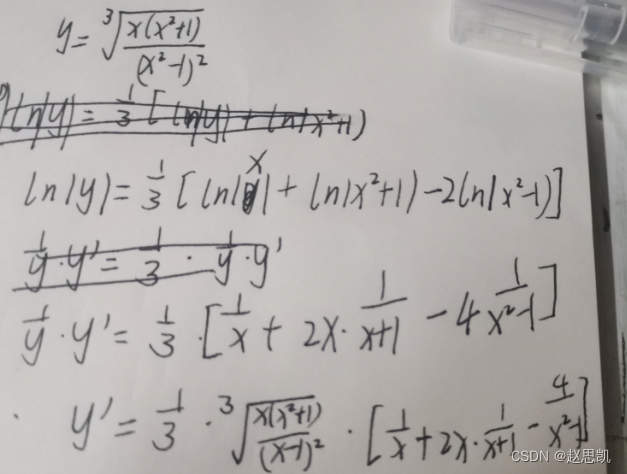 y = ∛(x(x²+1)/(x²-1)²)
ln|y| = 1/3 [ln|y| + ln|x²+1)
ln|y| = 1/3 [ln|x| + ln|x²+1) - 2ln|x²-1)]
1/y · y' = 1/3 · 1/y · y'
1/y · y' = 1/3 · [1/x + 2x · 1/(x+1) - 4 1/(x²-1)]
y' = 1/3 · ∛(x(x²+1)/(x-1)²) · [1/x + 2x · 1/(x+1) - 4/(x²-1)]
CSDN @赵思凯